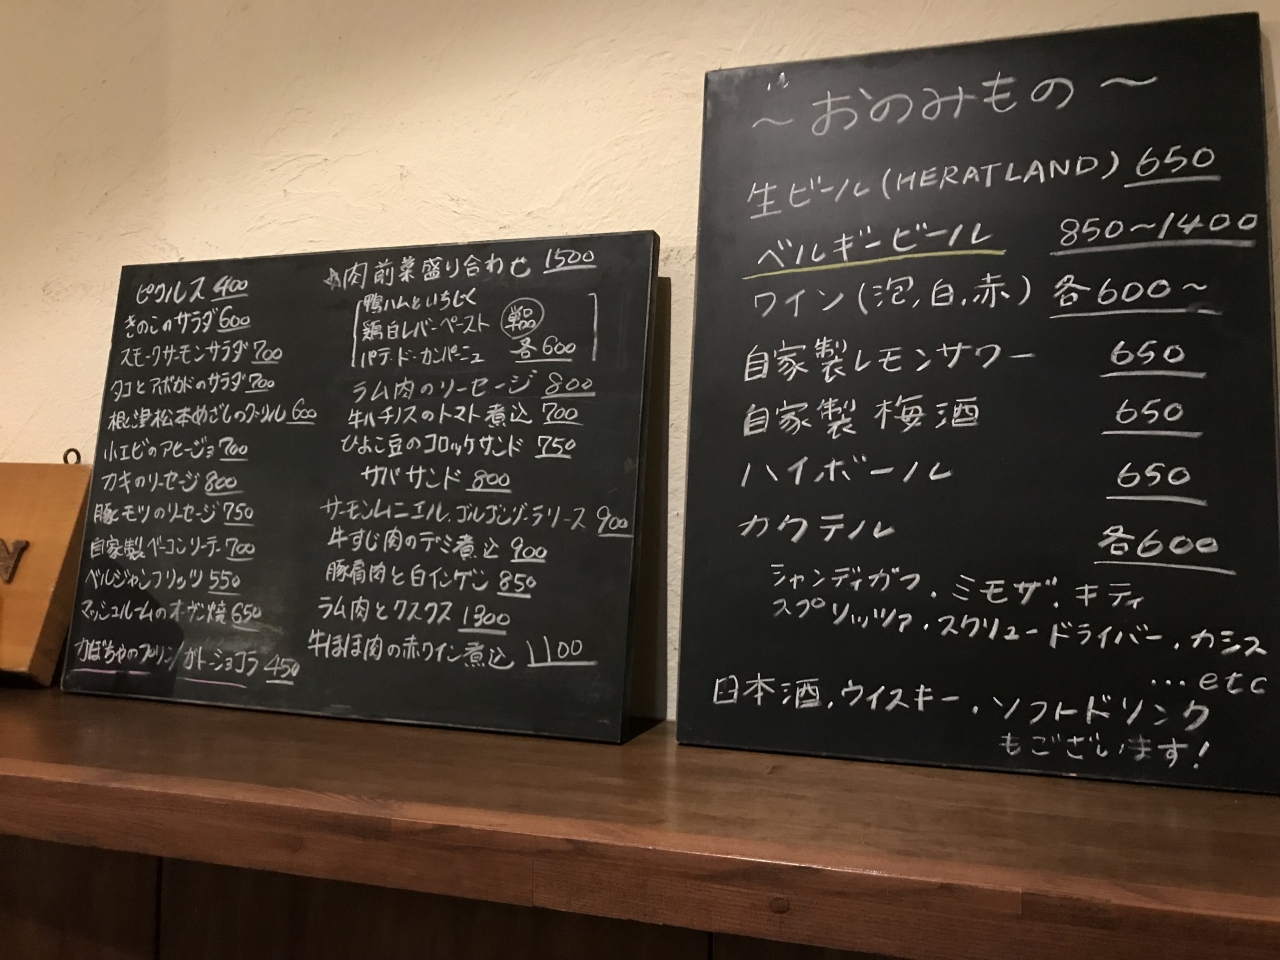 ピクルス 400
きのこのサラダ 600
スモークサーモンサラダ 700
タコとアボカドのサラダ 700
根津松本めざしのグリル 600
小エビのアヒージョ 700
カキのソーセージ 800
豚モツのソーセージ 750
自家製ベーコンソーテー 700
ベルジャンフリッツ 550
マッシュルームのオーヴン焼 650
かぼちゃのプリン/ガトーショコラ 450
☆肉前菜盛り合わせ 1500
鴨ハムといちじく
鶏白レバーペースト 単品
パテ・ド・カンパーニュ 各600
ラム肉のソーセージ 800
牛ハチノスのトマト煮込 700
ひよこ豆のコロッケサンド 750
サバサンド 800
サーモンムニエル.ゴルゴンゾーラソース 900
牛すじ肉のデミ煮込 900
豚肩肉と白インゲン 850
ラム肉とクスクス 1300
牛ほほ肉の赤ワイン煮込 1100
〜おのみもの〜
生ビール(HERATLAND) 650
ベルギービール 850〜1400
ワイン(泡,白,赤) 各600〜
自家製レモンサワー 650
自家製梅酒 650
ハイボール 650
カクテル 各600
シャンディガフ.ミモザ.キティ
スプリッツァ.スクリュードライバー.カシス
...etc
日本酒.ウイスキー.ソフトドリンク
もございます!